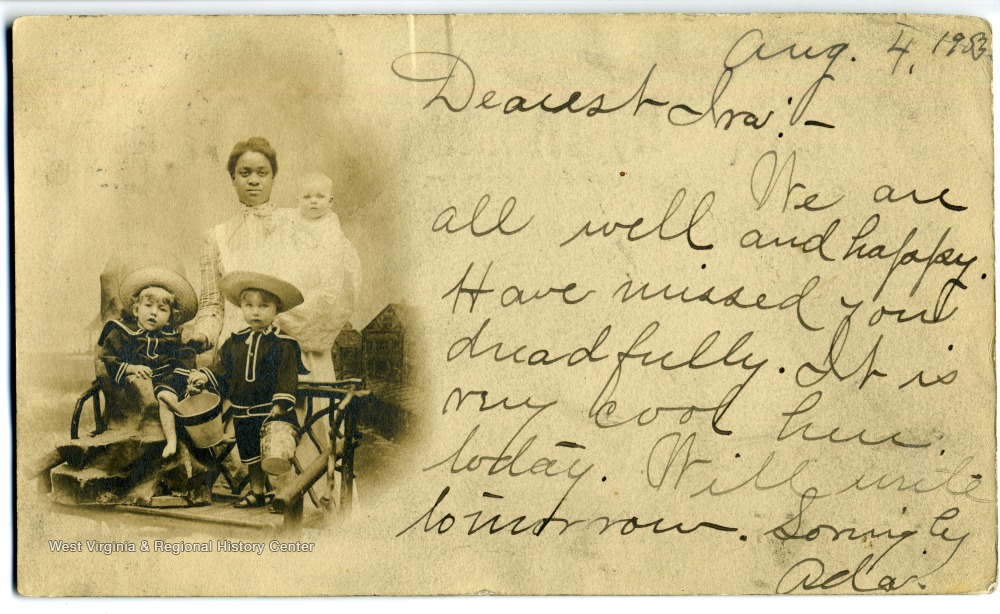 Aug. 4, 1903
Dearest Ira:-
We are
all well and happy.
Have missed you
dreadfully. It is
very cool here
today. Will write
tomorrow. Lovingly
Ada.
West Virginia & Regional History Center